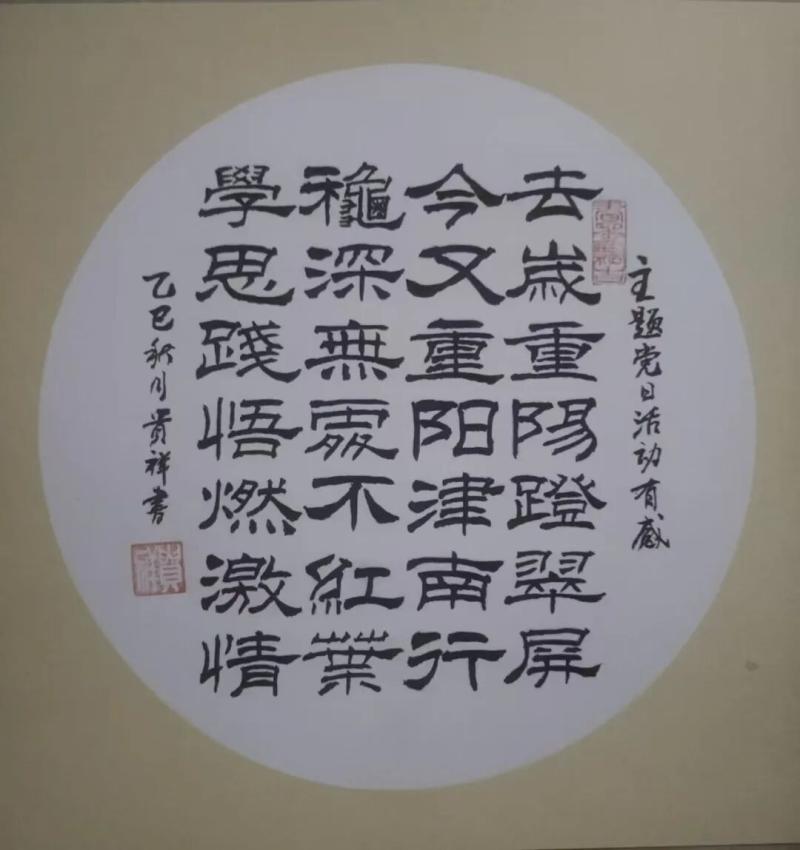 主题党日活动有感
去歲重陽蹬翠屏
今又重阳津南行
龝深無處不紅葉
學思踐悟燃激情
乙巳秋月贵祥書